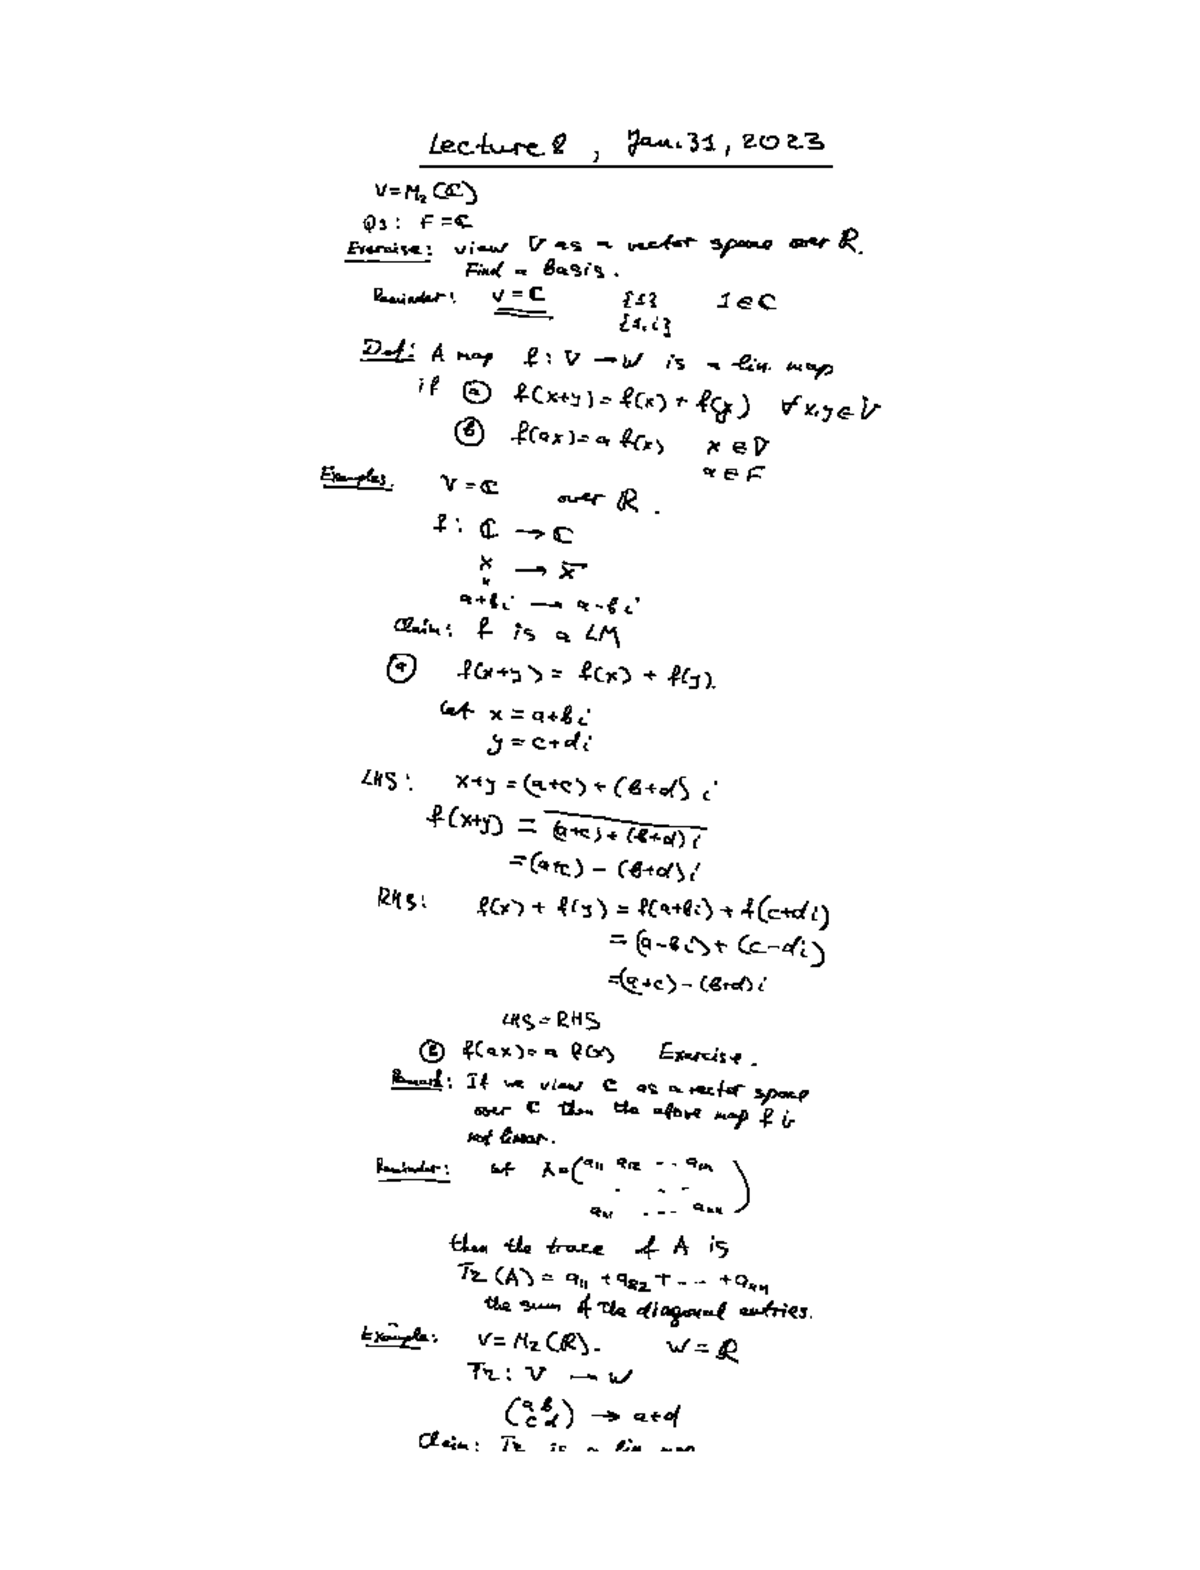 Lecture 8, Jan. 31, 2023
V = M₂(ℂ)
Q3: F = ℂ
Exercise: view V as a vector space over ℝ.
Find a Basis.
Reminder: V = ℂ {1} 1 ∈ ℂ
{1, i}
Def: A map f: V → W is a lin. map
if ⓐ f(x+y) = f(x) + f(y) ∀ x, y ∈ V
ⓑ f(ax) = a f(x) x ∈ V
a ∈ F
Examples. V = ℂ over ℝ.
f: ℂ → ℂ
x → x̄
a+bi → a-bi
Claim: f is a LM
ⓐ f(x+y) = f(x) + f(y).
Let x = a+bi
y = c+di
LHS: x+y = (a+c) + (b+d)i
f(x+y) = \overline{(a+c) + (b+d)i}
= (a+c) - (b+d)i
RHS: f(x) + f(y) = f(a+bi) + f(c+di)
= (a-bi) + (c-di)
= (a+c) - (b+d)i
LHS = RHS
ⓑ f(ax) = a f(x) Exercise.
Remark: If we view ℂ as a vector space
over ℂ then the above map f is
not linear.
Reminder: Let A = (a₁₁ a₁₂ -- a₁ₙ
. - -
aₙ₁ --- aₙₙ)
then the trace of A is
Tr(A) = a₁₁ + a₂₂ + --- + aₙₙ
the sum of the diagonal entries.
Example: V = M₂(ℝ). W = ℝ
Tr: V → W
(a b
c d) → a+d
Claim: Tr is a lin map